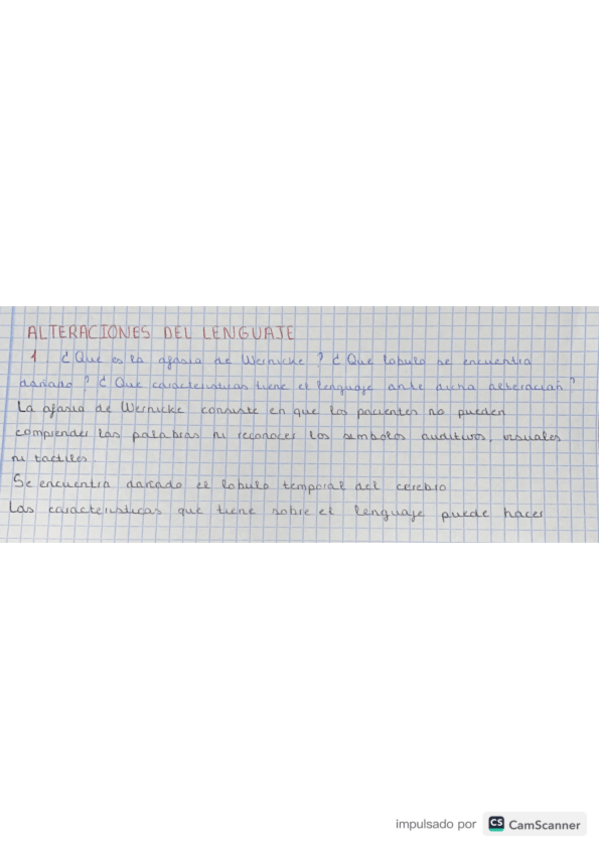 ALTERACIONES DEL LENGUAJE
1 ¿Que es la afasia de Wernicke? ¿Que lobulo se encuentra
dañado? ¿Que caracteristicas tiene el lenguaje ante dicha alteración?
La afasia de Wernicke consiste en que los pacientes no pueden
comprender las palabras ni reconocer los simbolos auditivos, visuales
ni tactiles.
Se encuentra dañado el lobulo temporal del cerebro
Las caracteristicas que tiene sobre el lenguaje puede hacer
impulsado por CS CamScanner